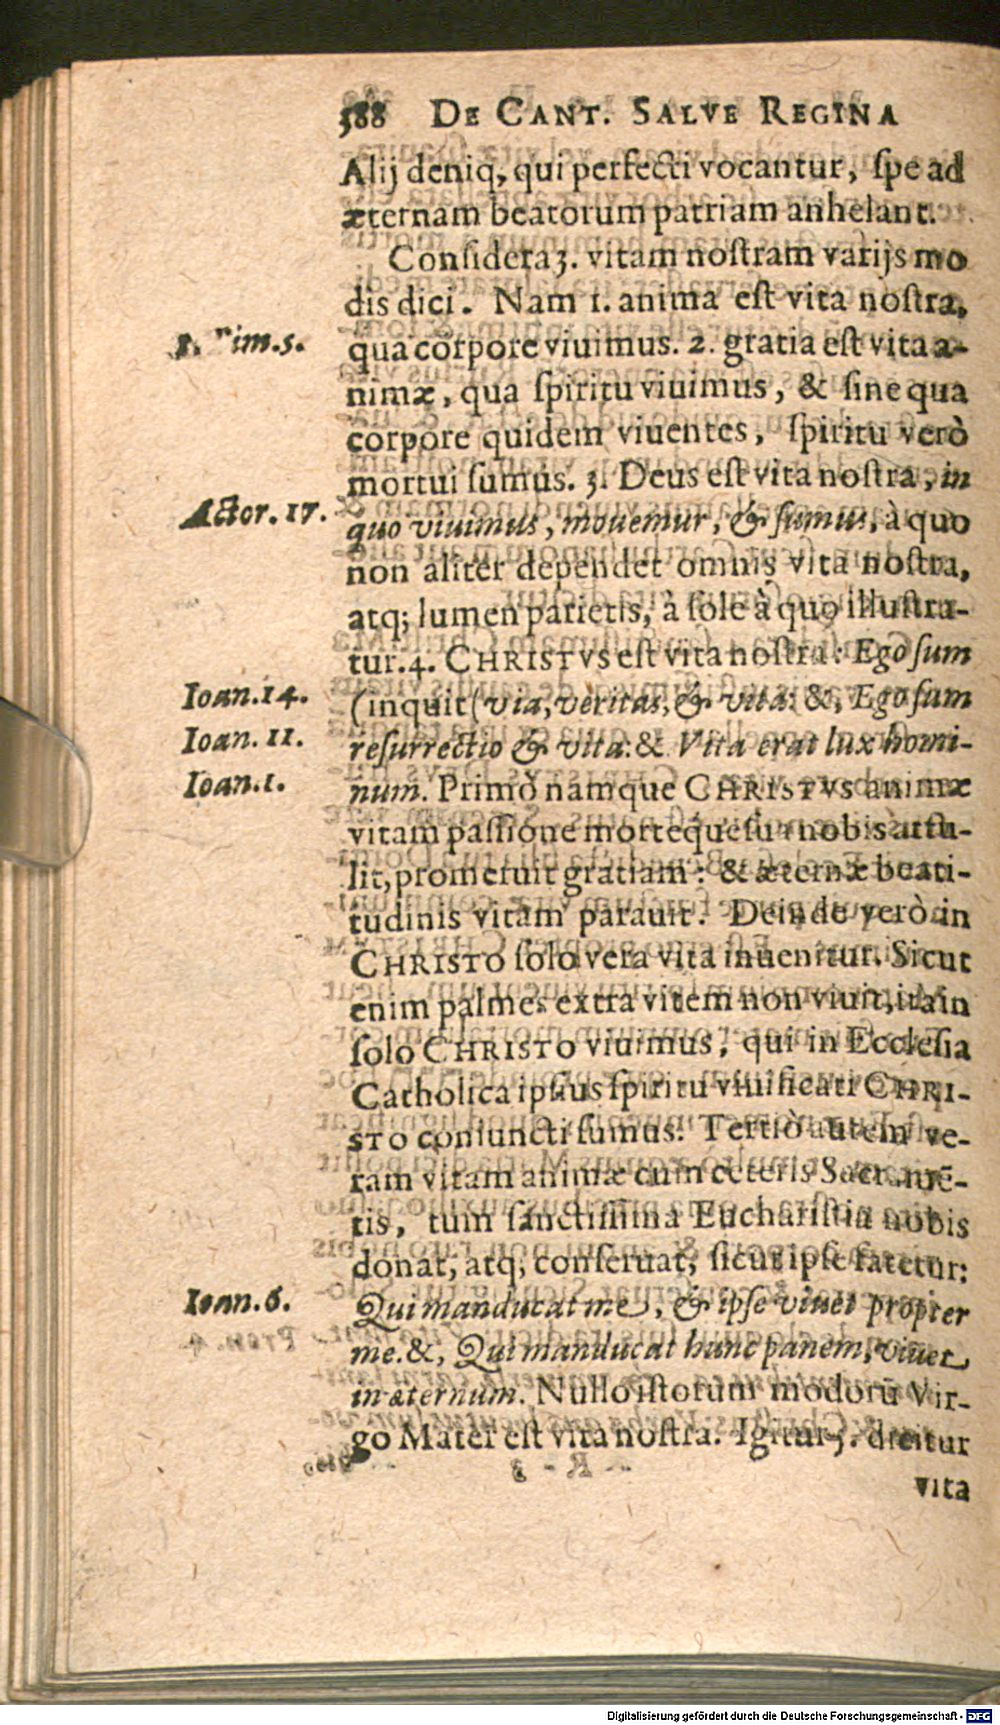 388 DE CANT. SALVE REGINA
Alij deniq, qui perfecti vocantur, ſpe ad
æternam beatorum patriam anhelant.
Conſidera 3. vitam noſtram varijs mo
dis dici. Nam 1. anima eſt vita noſtra,
1. Tim. 5.
qua corpore viuimus. 2. gratia eſt vita a-
nimæ, qua ſpiritu viuimus, & ſine qua
corpore quidem viuentes, ſpiritu verò
mortui ſumus. 3. Deus eſt vita noſtra, in
Actor. 17.
quo viuimus, mouemur, & ſumus, à quo
non aliter dependet omnis vita noſtra,
atq; lumen parietis, à ſole à quo illuſtra-
tur. 4. CHRISTVS eſt vita noſtra: Ego ſum
Ioan. 14.
(inquit( via, veritas, & vita: &, Ego ſum
Ioan. 11.
reſurrectio & vita: & Vita erat lux homi-
Ioan. 1.
num. Primò namque CHRISTVS animæ
vitam paſſione mortéque ſua nobis attu-
lit, prometuit gratiam: & æternæ beati-
tudinis vitam parauit. Deinde verò in
CHRISTO ſolo vera vita inuenitur. Sicut
enim palmes extra vitem non viuit, ita in
ſolo CHRISTO viuimus, qui in Eccleſia
Catholica ipſius ſpiritu viuificati CHRI-
STO coniuncti ſumus. Tertiò autem ve-
ram vitam animæ cum ceteris Sacramē-
tis, tum ſanctiſſima Euchariſtia nobis
donat, atq, conſeruat, ſicut ipſe fatetur:
Ioan. 6.
Qui manducat me, & ipſe viuet propter
me. &, Qui manducat hunc panem, viuet
in æternum. Nullo iſtorum modorũ Vir-
go Mater eſt vita noſtra. Igitur 5. dicitur
vita
Digitalisierung gefördert durch die Deutsche Forschungsgemeinschaft - DFG